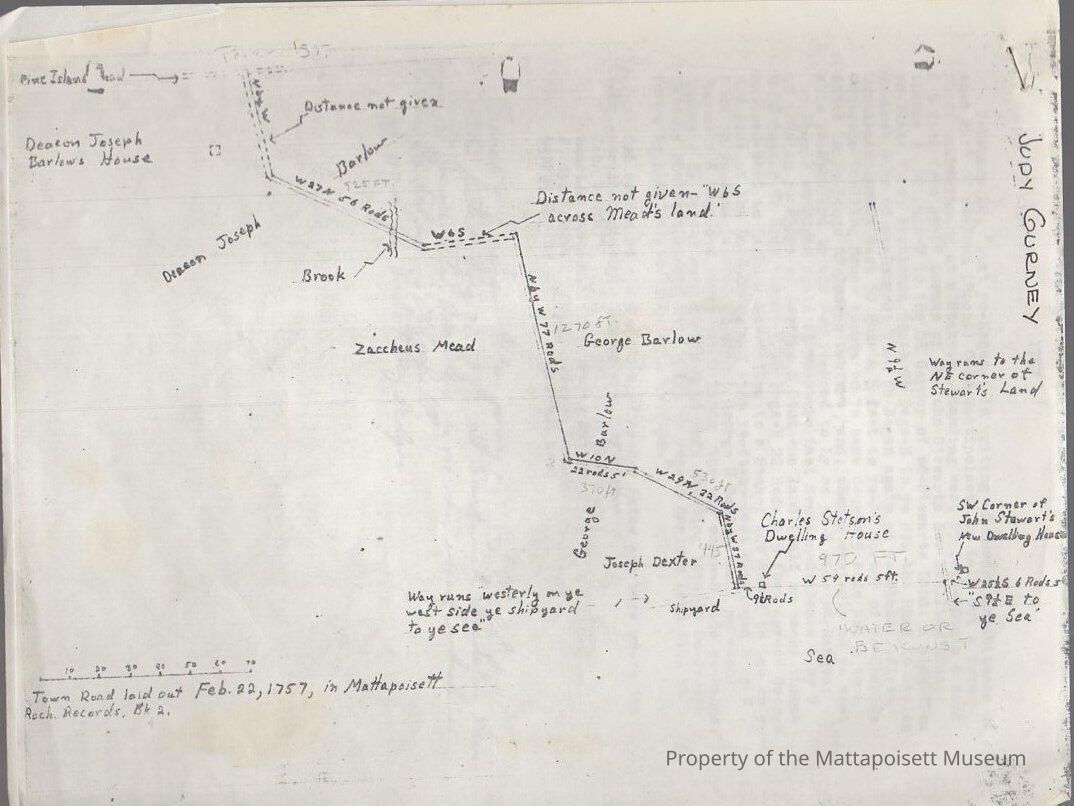 Pine Island Road
Distance not given
Deacon Joseph
Barlow's House
Barlow
W27N 56 Rods
925 FT.
Deacon Joseph
Brook
W6S
Distance not given-"W6S
across Mead's land."
JUDY GURNEY
Zaccheus Mead
77 Rods
1270 ft.
George Barlow
Way runs to the
NE corner of
Stewart's Land
George Barlow
W10N
22 rods 5'
370 ft
W29N 32 Rods
530 ft
445
Joseph Dexter
Charles Stetson's
Dwelling House
970 FT.
W 59 rods 5ft.
SW Corner of
John Stewart's
New Dwelling House
6 Rods 5
to
ye Sea"
Rods
Way runs "westerly on ye
west side ye shipyard
to ye sea"
Shipyard
WATER OR
Sea
10 20 30 40 50 60 70
Town Road laid out Feb. 22, 1757, in Mattapoisett
Roch. Records, Bk 2.
Property of the Mattapoisett Museum